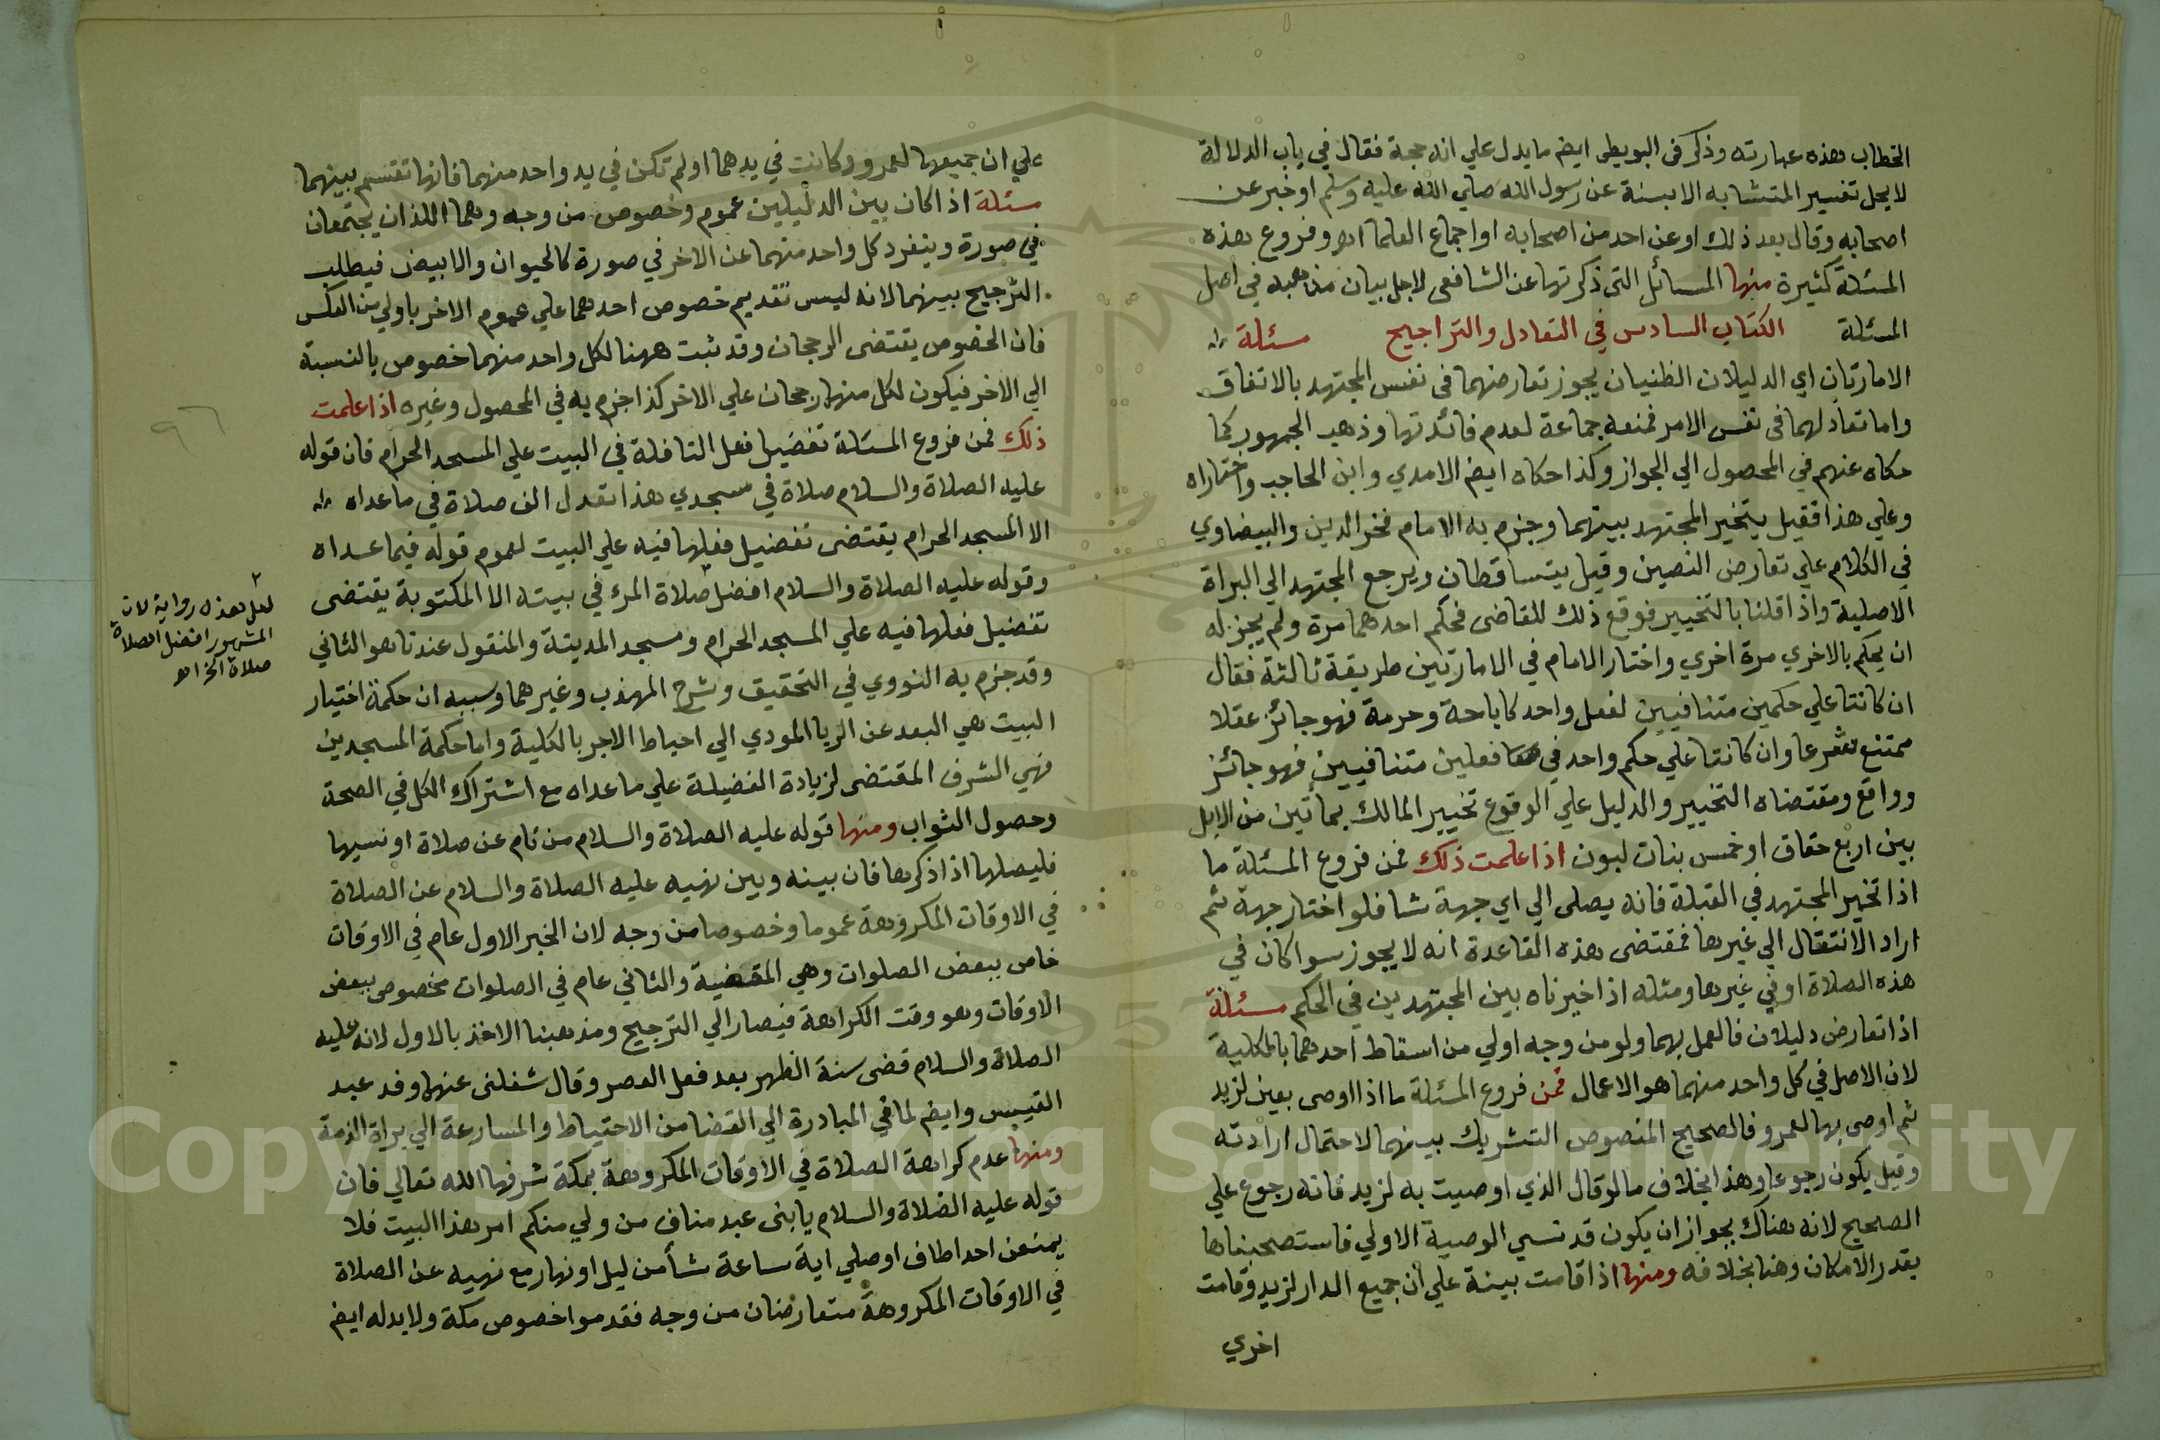 الخطاب هذه عبارته وذكر في البويطي ايضم ما يدل علي انه حجة فقال في باب الدلالة
لا يحل تفسير المتشابه الا بسنة عن رسول الله صلي الله عليه وسلم او خبر عن
اصحابه وقال بعد ذلك او عن احد من اصحابه او اجماع العلما اهر وفروع هذه
المسئلة كثيرة منها المسائل التي ذكرتها عن الشافعي لاجل بيان مذهبه في اصل
المسئلة الكتاب السادس في التعادل والتراجيح مسئلة
الامارتان اي الدليلان الظنيان يجوز تعارضهما في نفس المجتهد بالاتفاق
واما تعادلهما في نفس الامر فمنعه جماعة لعدم فائدتها وذهب الجمهور كما
حكاه عنهم في المحصول الي الجواز وكذا حكاه ايضم الامدي وابن الحاجب واختاراه
وعلي هذا فقيل يتخير المجتهد بينهما وجزم به الامام فخر الدين والبيضاوي
في الكلام علي تعارض النصين وقيل يتساقطان ويرجع المجتهد الي البراة
الاصلية واذا قلنا بالتخيير فوقع ذلك للقاضي فحكم احدهما مرة ولم يجز له
ان يحكم بالاخري مرة اخري واختار الامام في الامارتين طريقة ثالثة فقال
ان كانتا علي حكمين متنافيين لفعل واحد كاباحة وحرمة فهو جائز عقلا
ممتنع شرعا وان كانتا علي حكم واحد في فعلين متنافيين فهو جائز
وواقع ومقتضاه التخيير والدليل علي الوقوع تخيير المالك بمأتين من الابل
بين اربع حقاق او خمس بنات لبون اذا علمت ذلك فمن فروع المسئلة ما
اذا تخير المجتهد في القبلة فانه يصلي الي اي جهة شا فلو اختار جهة ثم
اراد الانتقال الي غيرها فمقتضي هذه القاعدة انه لا يجوز سوا كان في
هذه الصلاة او في غيرها ومثله اذا خيرناه بين المجتهدين في الحكم مسئلة
اذا تعارض دليلان فالعمل بهما ولو من وجه اولي من اسقاط احدهما بالكلية
لان الاصل في كل واحد منهما هو الاعمال فمن فروع المسئلة ما اذا اوصي بعين لزيد
ثم اوصي بها لعمرو فالصحيح المنصوص التشريك بينهما لاحتمال ارادته
وقيل يكون رجوعا وهذا بخلاف ما لو قال الذي اوصيت به لزيد فانه رجوع علي
الصحيح لانه هناك يجوز ان يكون قد نسي الوصية الاولي فاستصحبناها
بقدر الامكان وهنا بخلافه ومنها اذا قامت بينة علي ان جميع الدار لزيد وقامت
اخري
علي ان جميعها لعمرو وكانت في يدهما او لم تكن في يد واحد منهما فانها تقتسم بينهما
مسئلة اذا كان بين الدليلين عموم وخصوص من وجه وهما اللذان يجتمعان
في صورة وينفرد كل واحد منهما عن الاخر في صورة كالحيوان والابيض فيطلب
الترجيح بينهما لانه ليس تقديم خصوص احدهما علي عموم الاخر باولي من العكس
فان الخصوص يقتضي الرجحان وقد ثبت ههنا لكل واحد منهما خصوص بالنسبة
الي الاخر فيكون لكل منهما رجحان علي الاخر كذا جزم به في المحصول وغيره اذا علمت
ذلك فمن فروع المسئلة تفضيل فعل النافلة في البيت علي المسجد الحرام فان قوله
عليه الصلاة والسلام صلاة في مسجدي هذا تعدل الف صلاة في ما عداه
الا المسجد الحرام يقتضي تفضيل فعلها فيه علي البيت لعموم قوله فيما عداه
وقوله عليه الصلاة والسلام افضل صلاة المرء في بيته الا المكتوبة يقتضي
تفضيل فعلها فيه علي المسجد الحرام ومسجد المدينة والمنقول عندنا هو الثاني
وقد جزم به النووي في التحقيق وشرح المهذب وغيرهما وسببه ان حكمة اختيار
البيت هي البعد عن الريا المودي الي احباط الاجر بالكلية واما حكمة المسجدين
فهي الشرف المقتضي لزيادة الفضيلة علي ما عداه مع اشتراك الكل في الصحة
وحصول الثواب ومنها قوله عليه الصلاة والسلام من نام عن صلاة او نسيها
فليصلها اذا ذكرها فان بينه وبين نهيه عليه الصلاة والسلام عن الصلاة
في الاوقات المكروهة عموما وخصوصا من وجه لان الخبر الاول عام في الاوقات
خاص ببعض الصلوات وهي المقضية والثاني عام في الصلوات مخصوص ببعض
الاوقات وهو وقت الكراهة فيصار الي الترجيح ومذهبنا الاخذ بالاول لانه عليه
الصلاة والسلام قضي سنة الظهر بعد فعل العصر وقال شغلني عنها وفد عبد
القيس وايضم لما في المبادرة الي القضا من الاحتياط والمسارعة الي براة الذمة
ومنها عدم كراهة الصلاة في الاوقات المكروهة بمكة شرفها الله تعالي فان
قوله عليه الصلاة والسلام يا بني عبد مناف من ولي منكم امر هذا البيت فلا
يمنعن احدا طاف او صلي اية ساعة شأ من ليل او نهار مع نهيه عن الصلاة
في الاوقات المكروهة متعارضان من وجه فقدموا خصوص مكة ولا بد له ايضم
لعل هذه رواية لان
المشهور افضل الصلاة
صلاة الخ اهر
٩٦
Copyright © King Saud University
1957